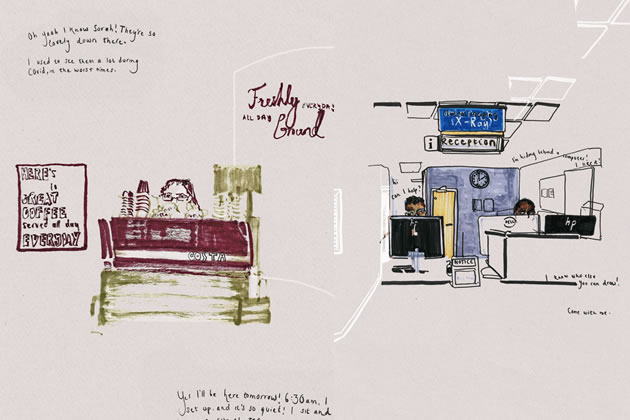 Oh yeah I know Sarah! They're so
lovely down there.
I used to see them a lot during
Covid, in the worst times.
Freshly
EVERYDAY
ALL DAY
Ground
HERE'S
is
GREAT
COFFEE
served all day
EVERYDAY
COSTA
(X-Ray)
i Reception
I'm hiding behind a computer!
hi
can I help?
hp
NOTICE
I know who else
you can draw!
Come with me.
Yes I'll be here tomorrow! 6:30am, I
set up, and it's so quiet! I sit and